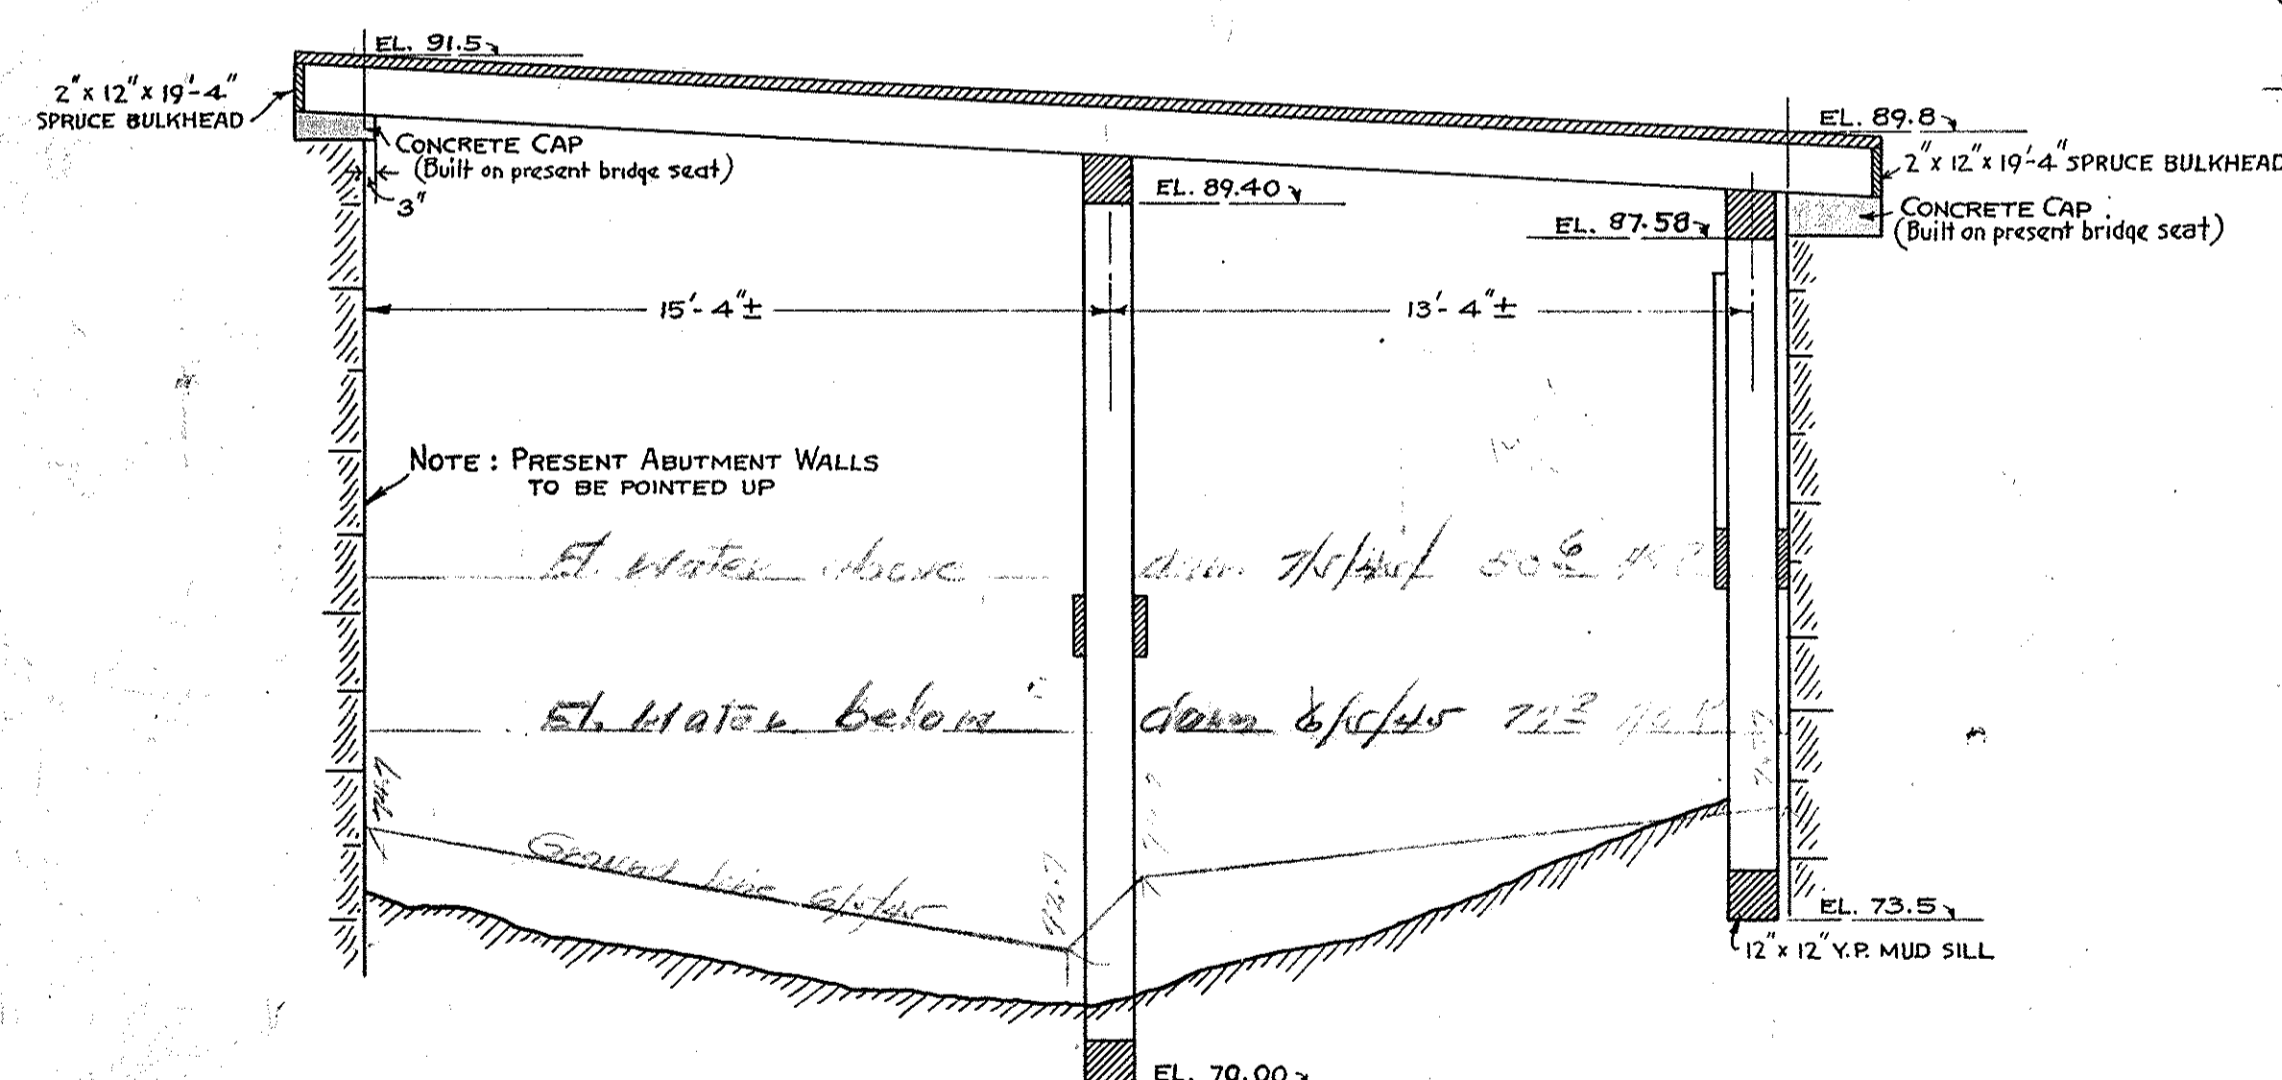 EL. 91.5
2" x 12" x 19'-4"
SPRUCE BULKHEAD
CONCRETE CAP
(Built on present bridge seat)
3"
EL. 89.8
2" x 12" x 19'-4" SPRUCE BULKHEAD
CONCRETE CAP
(Built on present bridge seat)
EL. 89.40
EL. 87.58
15'-4"±
13'-4"±
NOTE : PRESENT ABUTMENT WALLS
TO BE POINTED UP
El. Water above
El. Water below dam 6/5/45
74.7
Ground line 6/5/45
72.7
EL. 73.5
12" x 12" Y.P. MUD SILL
EL. 70.00